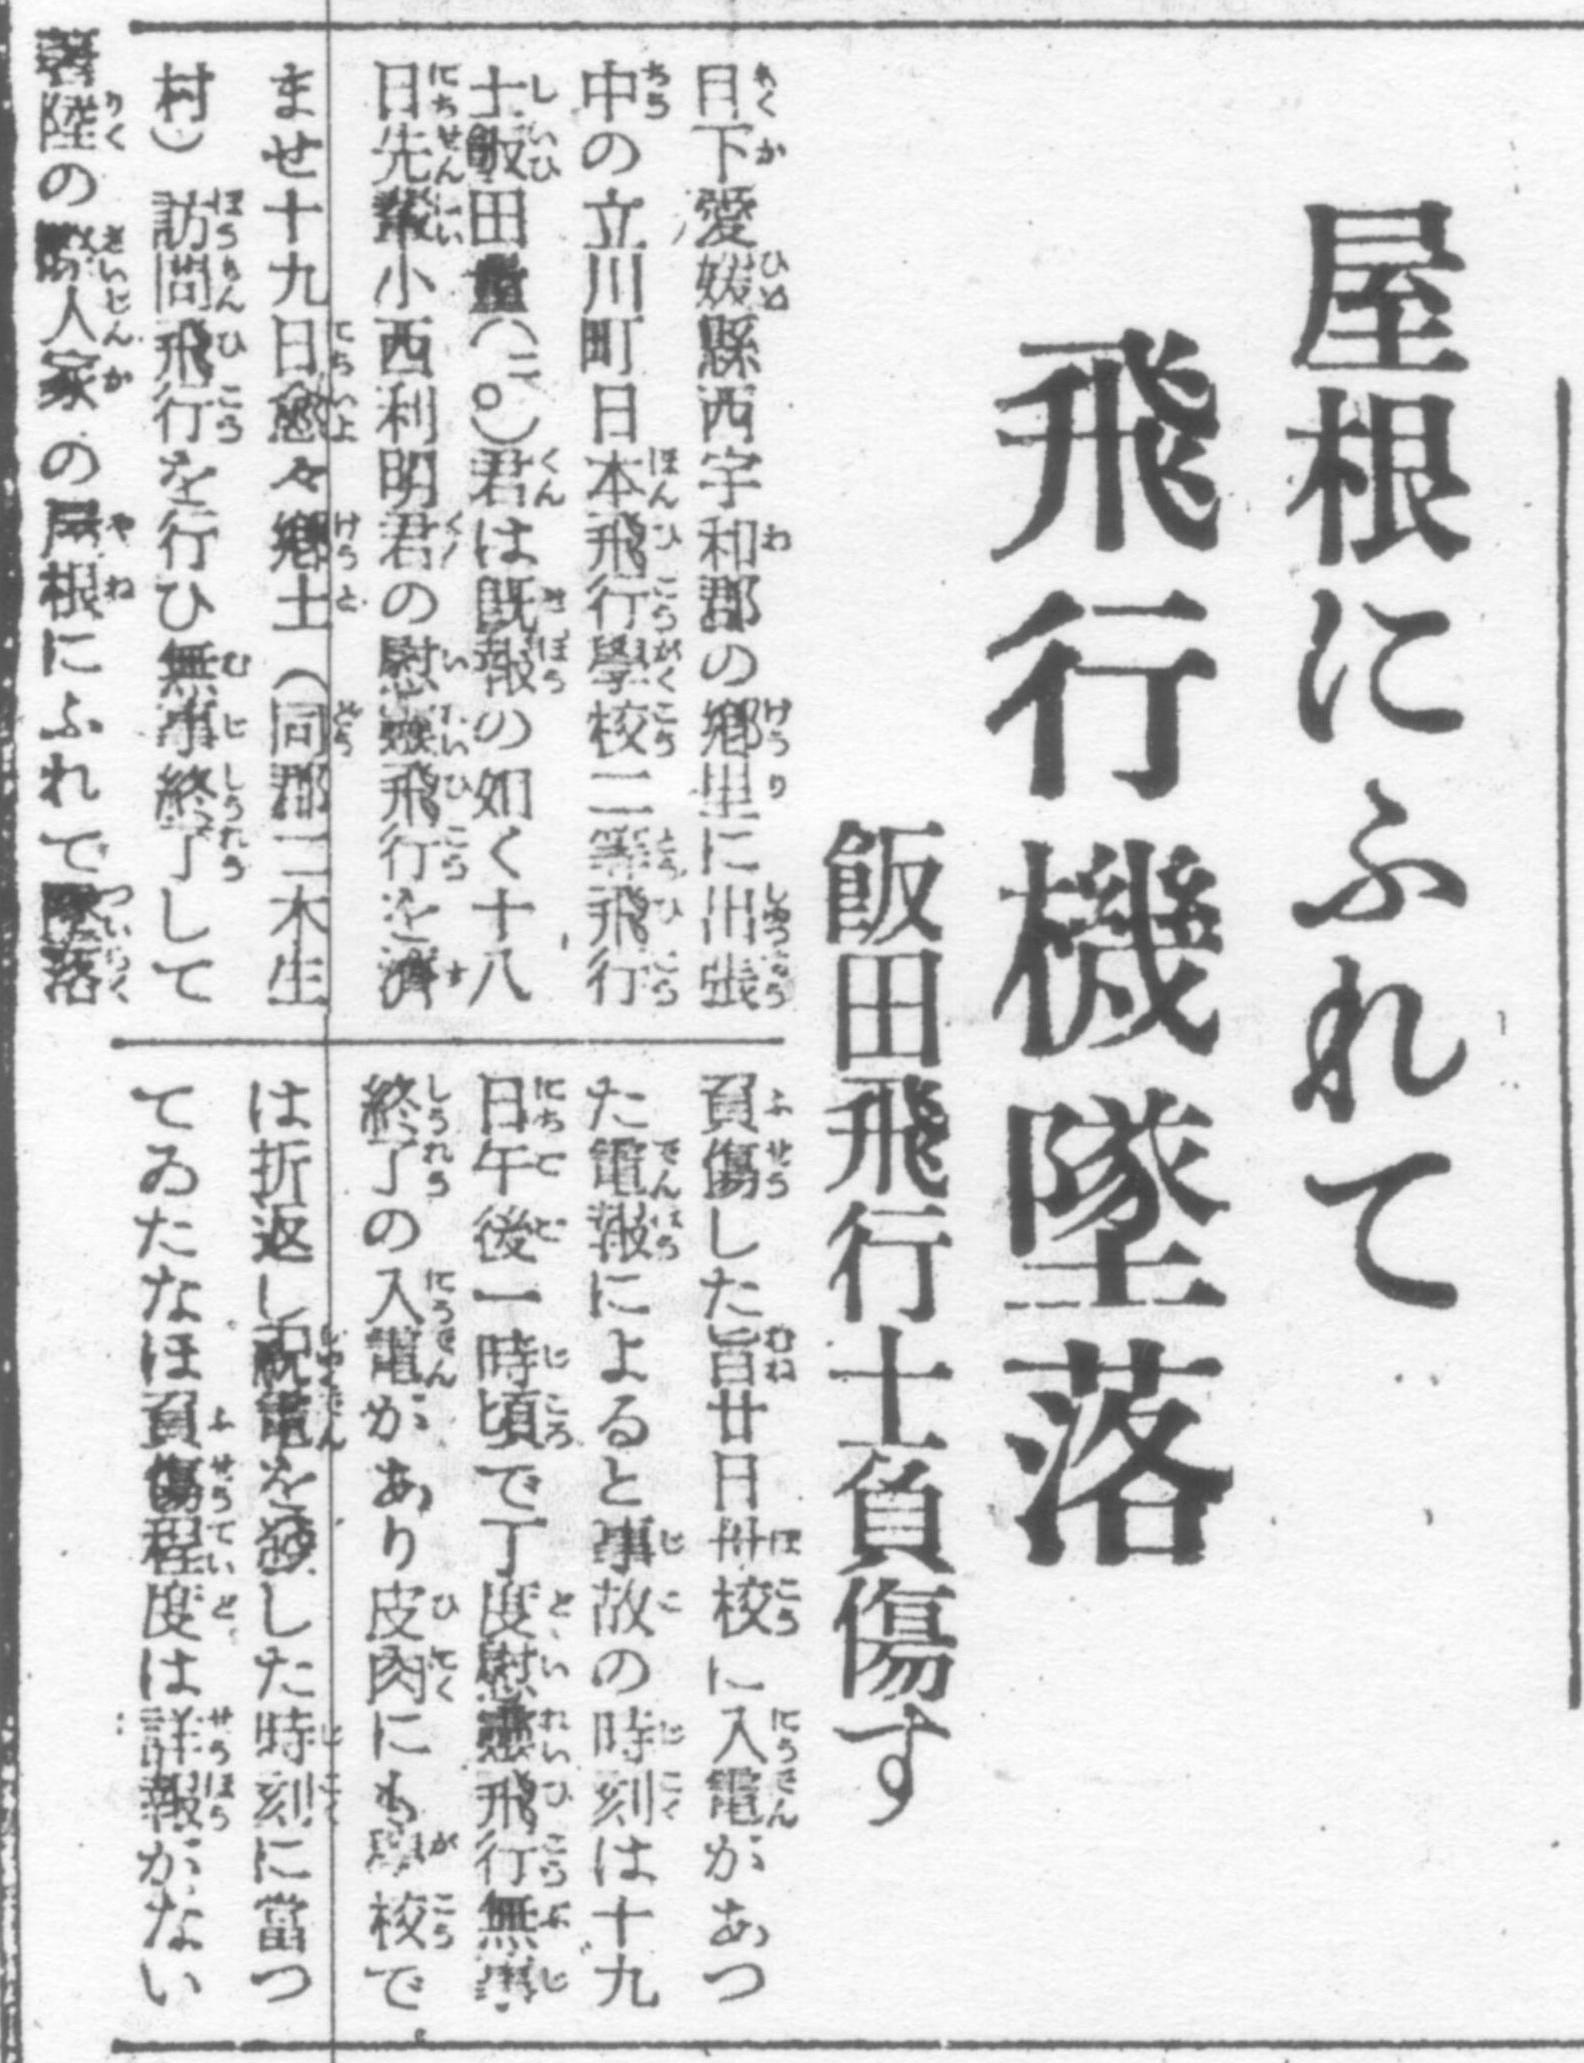 屋根にふれて
飛行機墜落
飯田飛行士負傷す
目下愛媛縣西宇和郡の郷里に出張
中の立川町日本飛行學校二等飛行
士飯田(二〇)君は既報の如く十八
日先輩小西利明君の慰靈飛行を濟
ませ十九日愈々郷土(同郡二木生
村)訪問飛行を行ひ無事終了して
著陸の際人家の屋根にふれて墜落
負傷した旨廿日同校に入電があつ
た電報によると事故の時刻は十九
日午後一時頃で丁度慰靈飛行無事
終了の入電があり皮肉にも學校で
は折返し祝電を發した時刻に當つ
てゐたなほ負傷程度は詳報がない